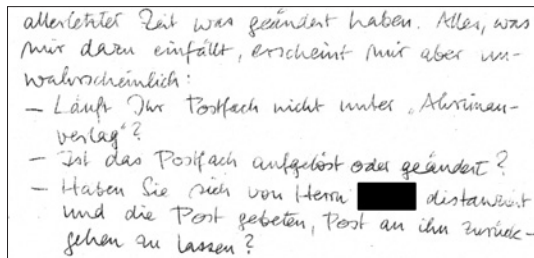 allerletzter Zeit was geändert haben. Alles, was
mir dazu einfällt, erscheint mir aber un-
wahrscheinlich:
– Läuft Ihr Postfach nicht unter „Ahriman-
verlag"?
– Ist das Postfach aufgelöst oder geändert?
– Haben Sie sich von Herrn distanziert
und die Post gebeten, Post an ihn zurück-
gehen zu lassen?